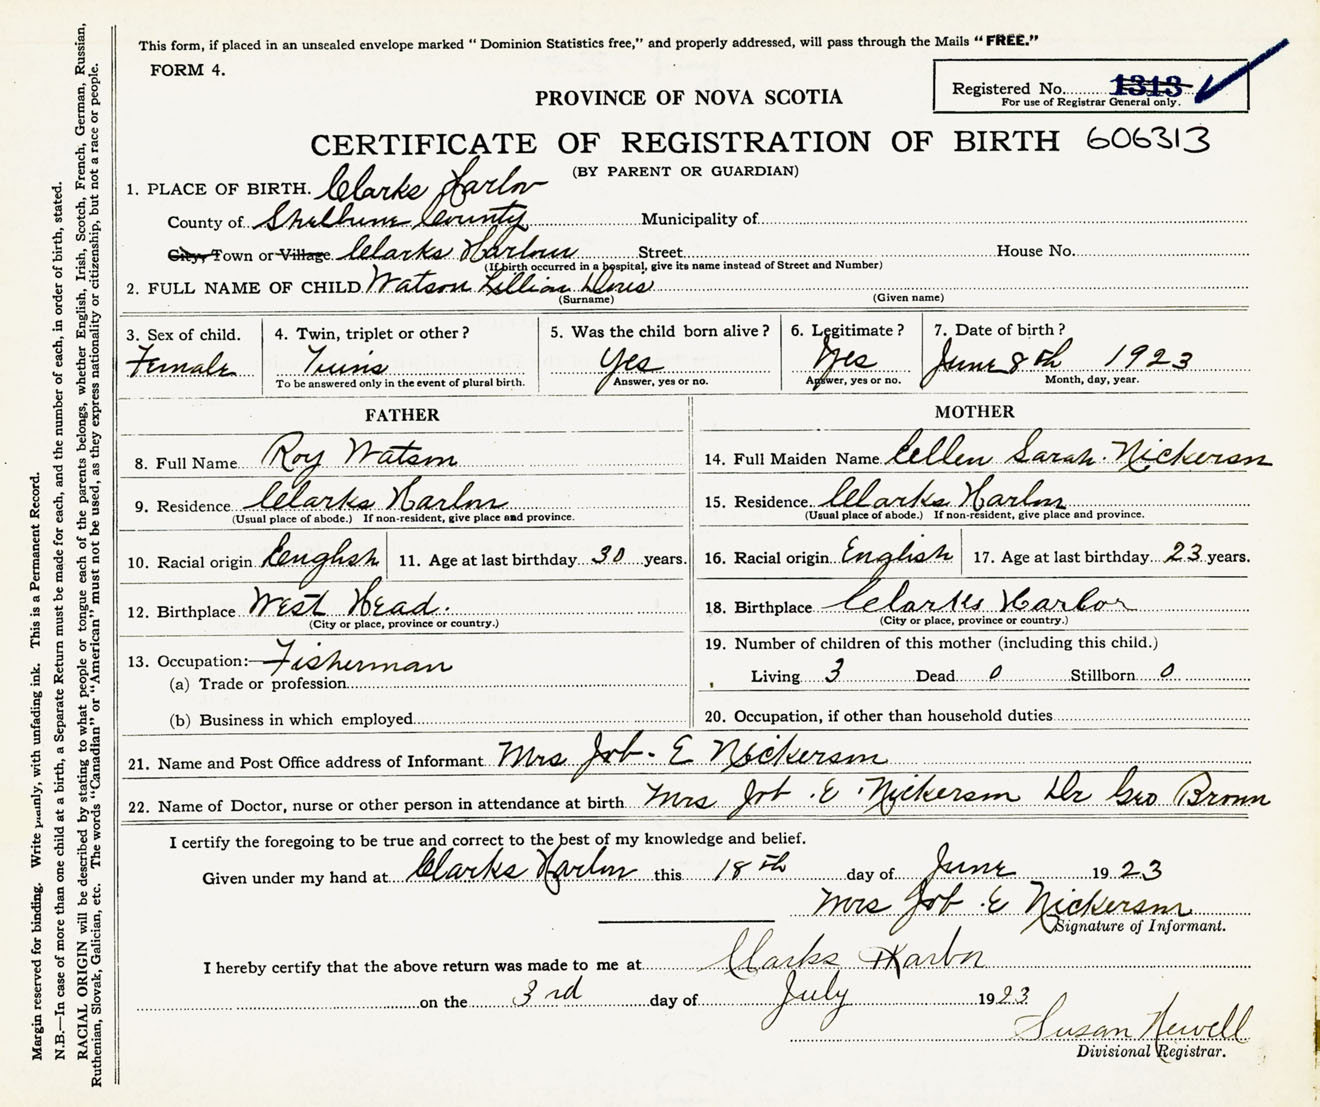 This form, if placed in an unsealed envelope marked "Dominion Statistics free," and properly addressed, will pass through the Mails "FREE."
FORM 4.
Registered No. 1313
For use of Registrar General only.
PROVINCE OF NOVA SCOTIA
CERTIFICATE OF REGISTRATION OF BIRTH 606313
(BY PARENT OR GUARDIAN)
1. PLACE OF BIRTH. Clarks Harbor
County of Shelburne County Municipality of
City, Town or Village Clarks Harbour Street House No.
(If birth occurred in a hospital, give its name instead of Street and Number)
2. FULL NAME OF CHILD Watson Lillian Doris
(Surname) (Given name)
3. Sex of child. 4. Twin, triplet or other? 5. Was the child born alive? 6. Legitimate? 7. Date of birth?
Female Twins Yes Yes June 8th 1923
To be answered only in the event of plural birth. Answer, yes or no. Answer, yes or no. Month, day, year.
FATHER MOTHER
8. Full Name Roy Watson 14. Full Maiden Name Ellen Sarah Nickerson
9. Residence Clarks Harbor 15. Residence Clarks Harbor
(Usual place of abode.) If non-resident, give place and province. (Usual place of abode.) If non-resident, give place and province.
10. Racial origin English 11. Age at last birthday 30 years. 16. Racial origin English 17. Age at last birthday 23 years.
12. Birthplace West Head. 18. Birthplace Clarks Harbor
(City or place, province or country.) (City or place, province or country.)
13. Occupation:— Fisherman 19. Number of children of this mother (including this child.)
(a) Trade or profession Living 3 Dead 0 Stillborn 0
(b) Business in which employed 20. Occupation, if other than household duties
21. Name and Post Office address of Informant Mrs Job. E Nickerson
22. Name of Doctor, nurse or other person in attendance at birth Mrs Job .E. Nickerson Dr Geo Brown
I certify the foregoing to be true and correct to the best of my knowledge and belief.
Given under my hand at Clarks Harbor this 18th day of June 1923
Mrs Job .E Nickerson
Signature of Informant.
I hereby certify that the above return was made to me at Clarks Harbor
on the 3rd day of July 1923
Susan Newell
Divisional Registrar.
Margin reserved for binding. Write plainly, with unfading ink. This is a Permanent Record.
N.B.—In case of more than one child at a birth, a Separate Return must be made for each, and the number of each, in order of birth, stated.
RACIAL ORIGIN will be described by stating to what people or tongue each of the parents belongs, whether English, Irish, Scotch, French, German, Russian,
Ruthenian, Slovak, Galician, etc. The words "Canadian" or "American" must not be used, as they express nationality or citizenship, but not a race or people.